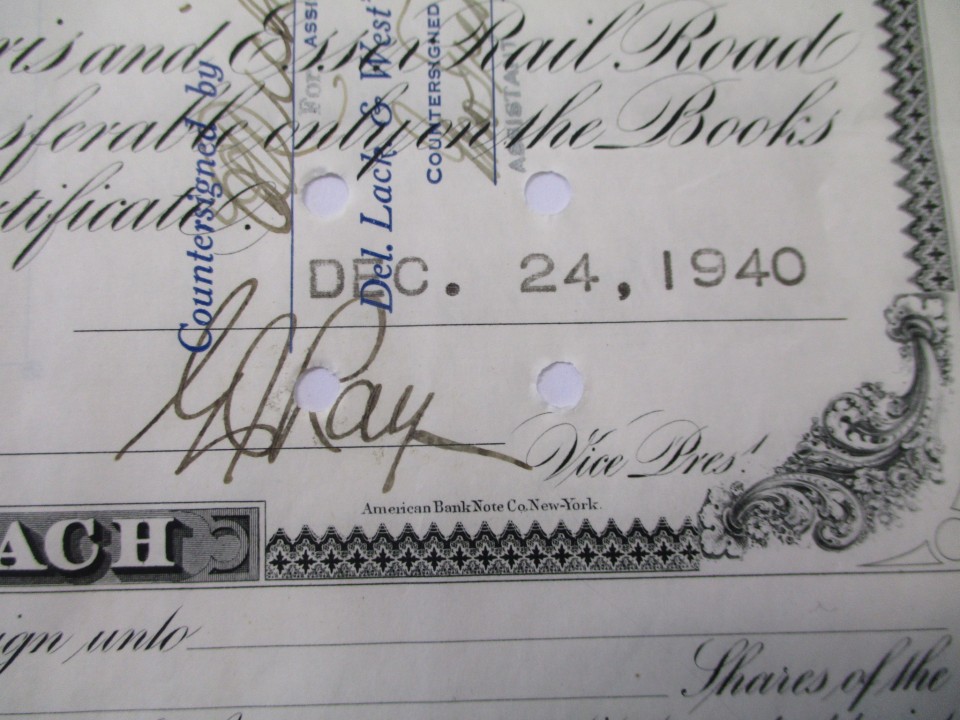 ris and Essex Rail Road
sferable only on the Books
rtificate.
Countersigned by
For ASSI
Del. Lack & West
COUNTERSIGNED
ASSISTANT
DEC. 24, 1940
Ray
Vice Pres!
American Bank Note Co. New-York.
ACH
ign unto
Shares of the